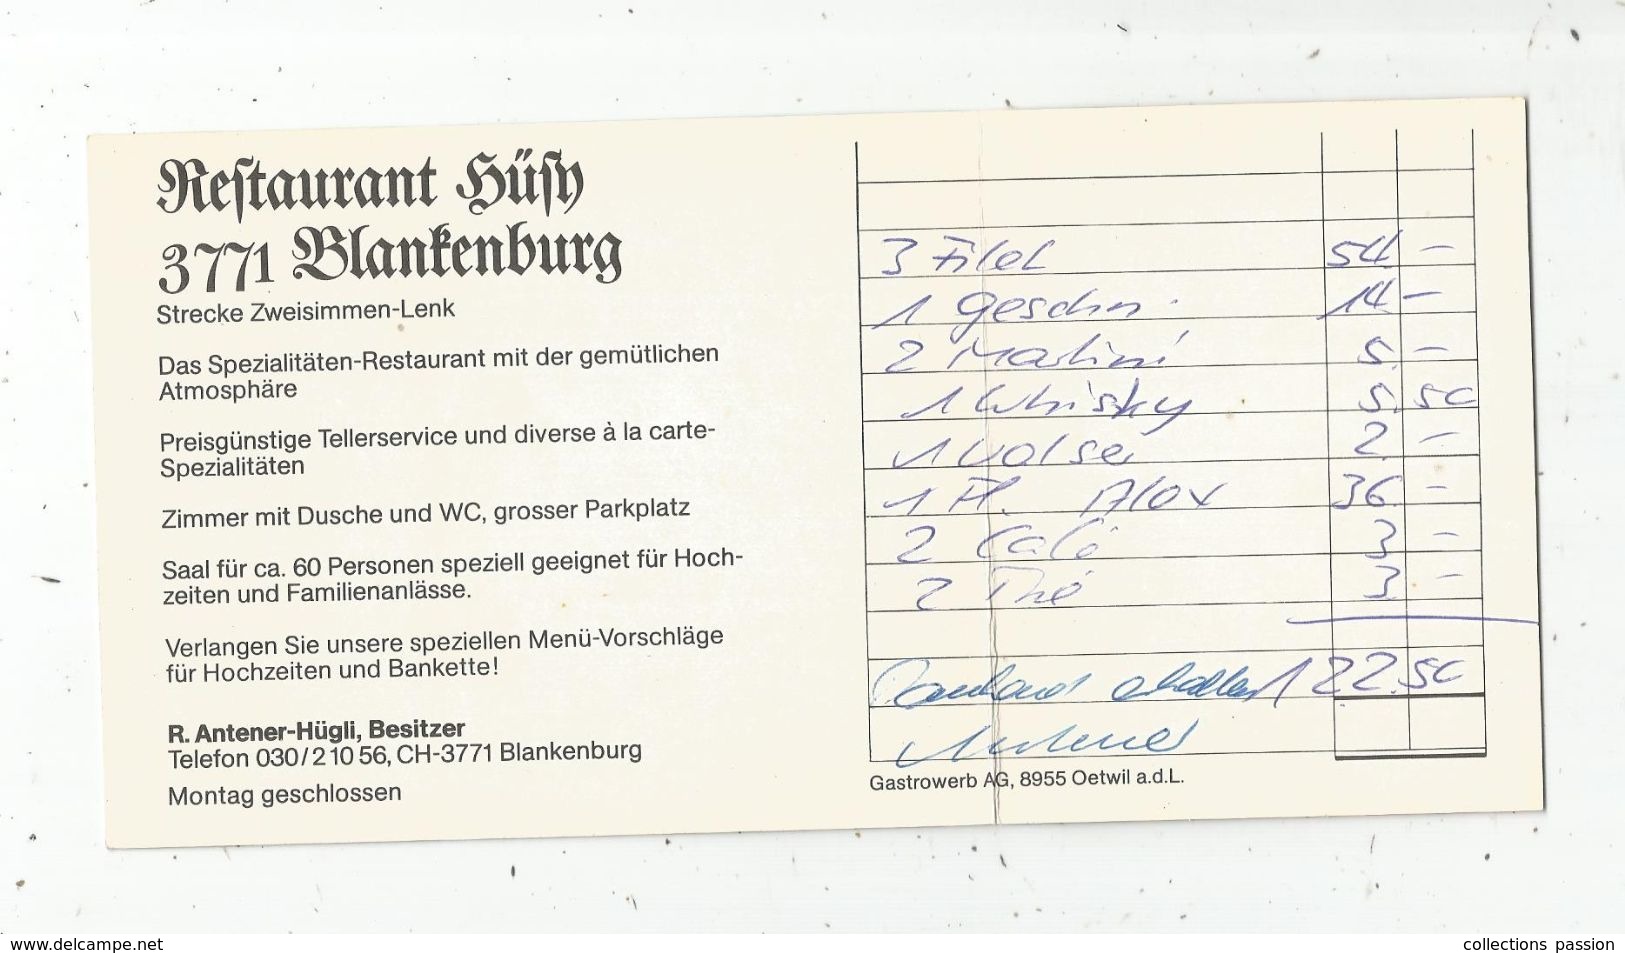 Restaurant Hüsy
3771 Blankenburg
Strecke Zweisimmen-Lenk
Das Spezialitäten-Restaurant mit der gemütlichen
Atmosphäre
Preisgünstige Tellerservice und diverse à la carte-
Spezialitäten
Zimmer mit Dusche und WC, grosser Parkplatz
Saal für ca. 60 Personen speziell geeignet für Hoch-
zeiten und Familienanlässe.
Verlangen Sie unsere speziellen Menü-Vorschläge
für Hochzeiten und Bankette!
R. Antener-Hügli, Besitzer
Telefon 030/2 10 56, CH-3771 Blankenburg
Montag geschlossen
3 Filet 54 –
1 geschn. 14 –
2 Martini 5. –
1 Whisky 5. 50
1 2. –
1 Fl. Alox 36. –
2 Café 3 –
2 Thé 3. –
Dankend erhalten 122.50
Antener
Gastrowerb AG, 8955 Oetwil a.d.L.
www.delcampe.net
collections passion